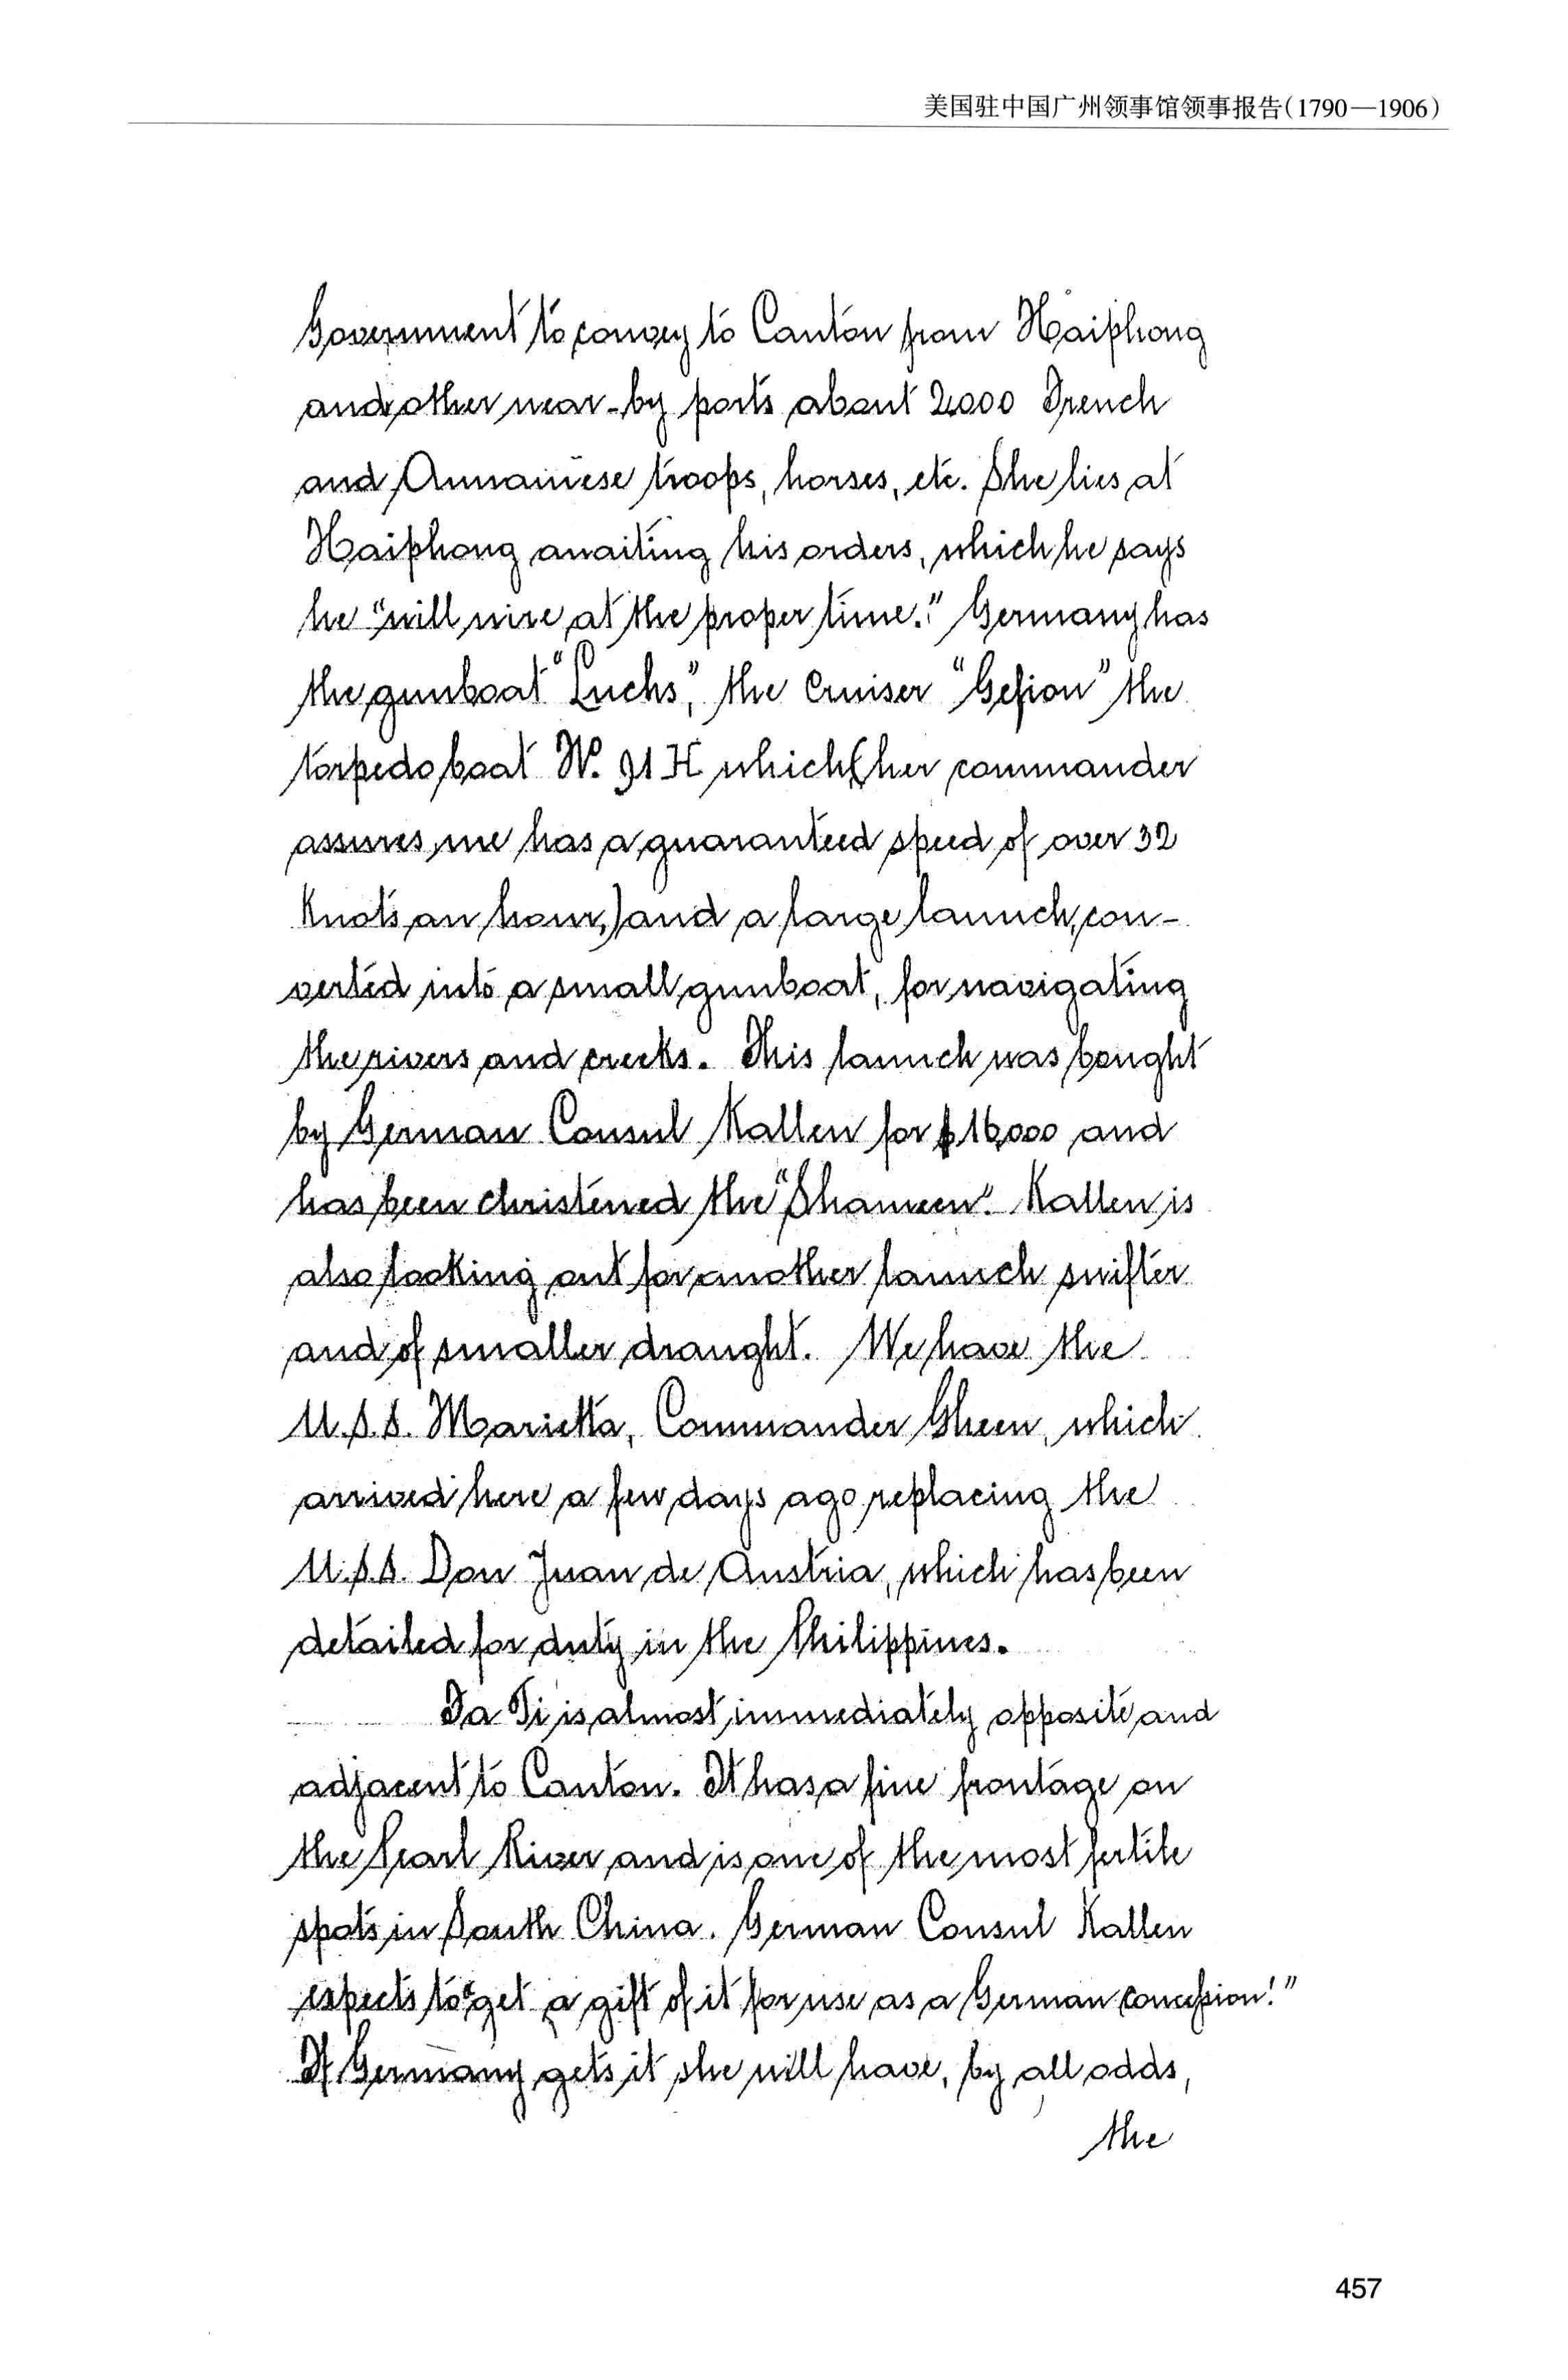 美国驻中国广州领事馆领事报告(1790—1906)
Government to convey to Canton from Haiphong
and other near-by ports about 2,000 French
and Annamese troops, horses, etc. She lies at
Haiphong awaiting his orders, which he says
he "will wire at the proper time." Germany has
the gunboat "Luchs", the Cruiser "Gefion" the
torpedo boat No. 91 H which (her commander
assures me has a guaranteed speed of over 32
Knots an hour,) and a large launch, con-
verted into a small gunboat, for navigating
the rivers and creeks. This launch was bought
by German Consul Kallen for $16,000 and
has been christened the "Shameen". Kallen is
also looking out for another launch swifter
and of smaller draught. We have the
U.S.S. Marietta, Commander Gheen, which
arrived here a few days ago replacing the
U.S.S. Don Juan de Austria, which has been
detailed for duty in the Philippines.
Fa Ti is almost immediately opposite and
adjacent to Canton. It has a fine frontage on
the Pearl River and is one of the most fertile
spots in South China. German Consul Kallen
expects to "get a gift of it for use as a German concession!"
If Germany gets it she will have, by all odds,
the
457